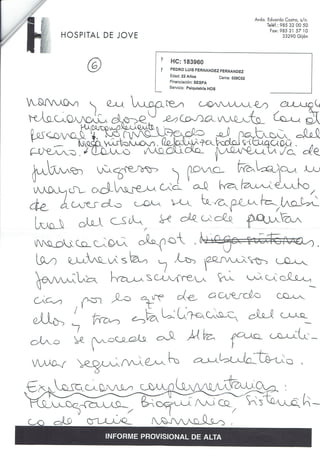 HOSPITAL DE JOVE
Avda. Eduardo Castro, s/n.
Telf.: 985 32 00 50
Fax: 985 31 57 10
33290 Gijón
6
HC: 183960
PEDRO LUIS FERNANDEZ FERNANDEZ
Edad: 52 Años Cama:
Financiación: SESPA
Servicio: Psiquiatría HDS
normas y en lugares comunes aunq
relacionándose escasamente con
personal y normalizado el patrón del
Niega síntomas. Relativiza la situación.
sueño. Como medida preventiva de
futuros ingresos y para trabajar un
mayor adherencia al tratamiento,
de acuerdo con su terapeuta habi
tual del CSM, se decide pautar
medicación depot. Niega síntomas.
Las entrevistas y los permisos con
familia transcurren sin inciden
cias, por lo que de acuerdo con
ellos y tras estabilización del cua
dro se procede al Alta para conti-
nuar seguimiento ambulatorio.
Exploraciones complementarias:
Hemograma, Bioquímica, Sistemáti-
co de orina normales.
INFORME PROVISIONAL DE ALTA